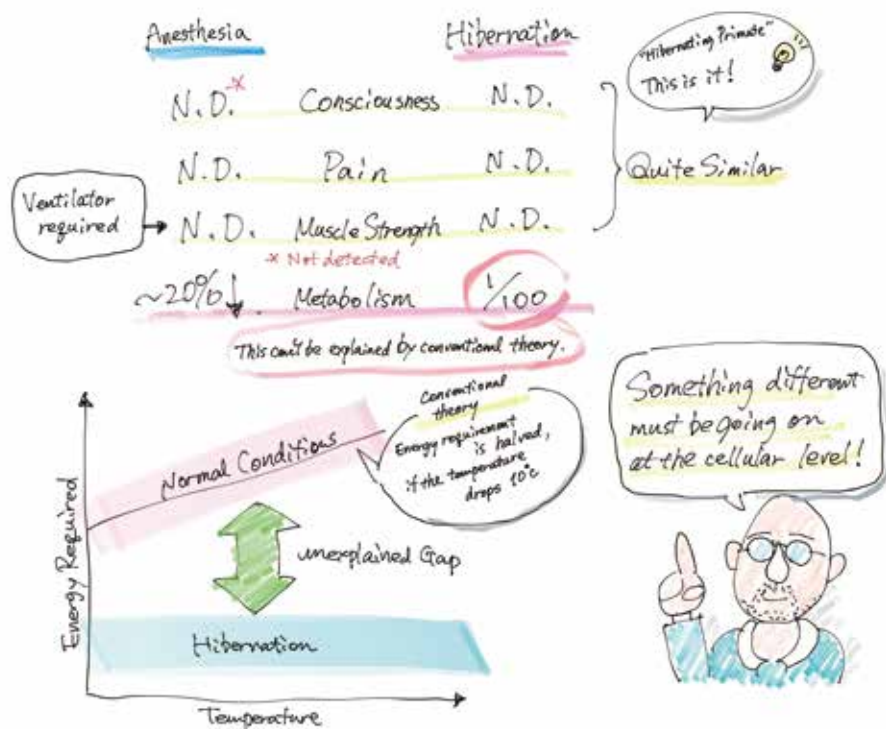 Anesthesia Hibernation
"Hibernating Primate"
This is it!
N.D.* Consciousness N.D.
N.D. Pain N.D.
Quite Similar
Ventilator
required
N.D. Muscle Strength N.D.
* Not detected
~20%↓ Metabolism 1/100
This can't be explained by conventional theory.
Conventional
theory
Energy requirement
is halved,
if the temperature
drops 10°C
Something different
must be going on
at the cellular level!
Normal Conditions
Unexplained Gap
Energy Required
Hibernation
Temperature